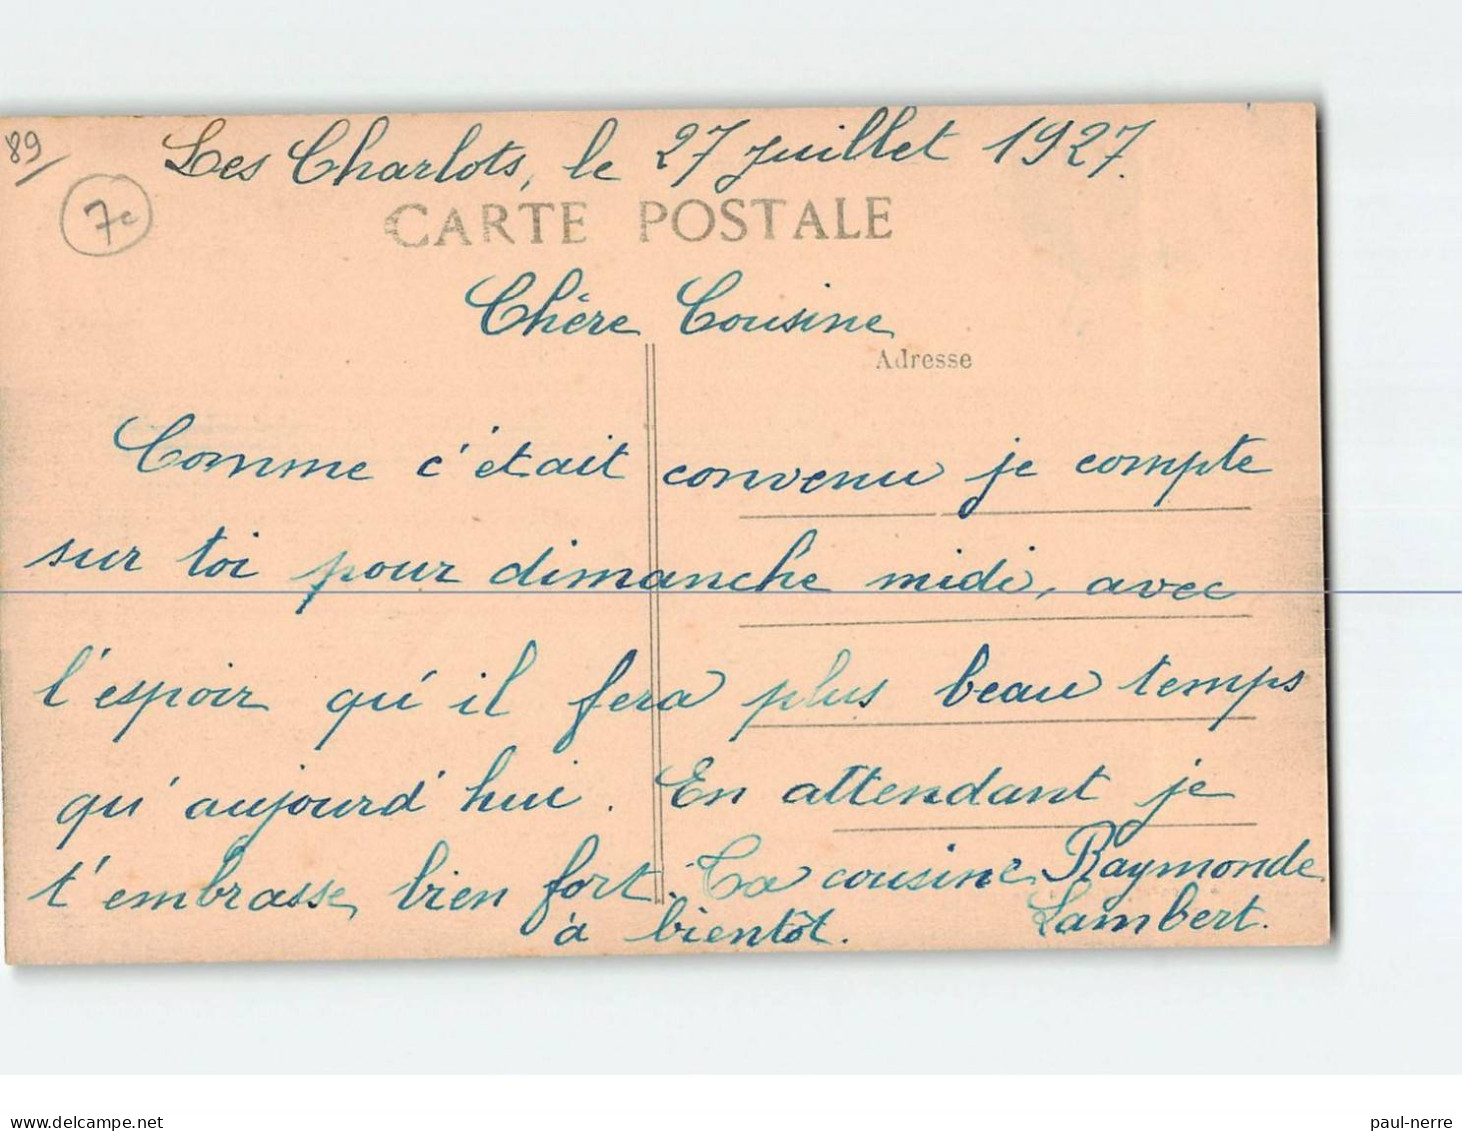 89
7e
Les Charlots, le 27 Juillet 1927.
CARTE POSTALE
Chère Cousine
Adresse
Comme c'était convenu je compte
sur toi pour dimanche midi, avec
l'espoir qu'il fera plus beau temps
qu'aujourd'hui. En attendant je
t'embrasse bien fort. Ta cousine Raymonde
à bientôt. Lambert.
paul-nerre